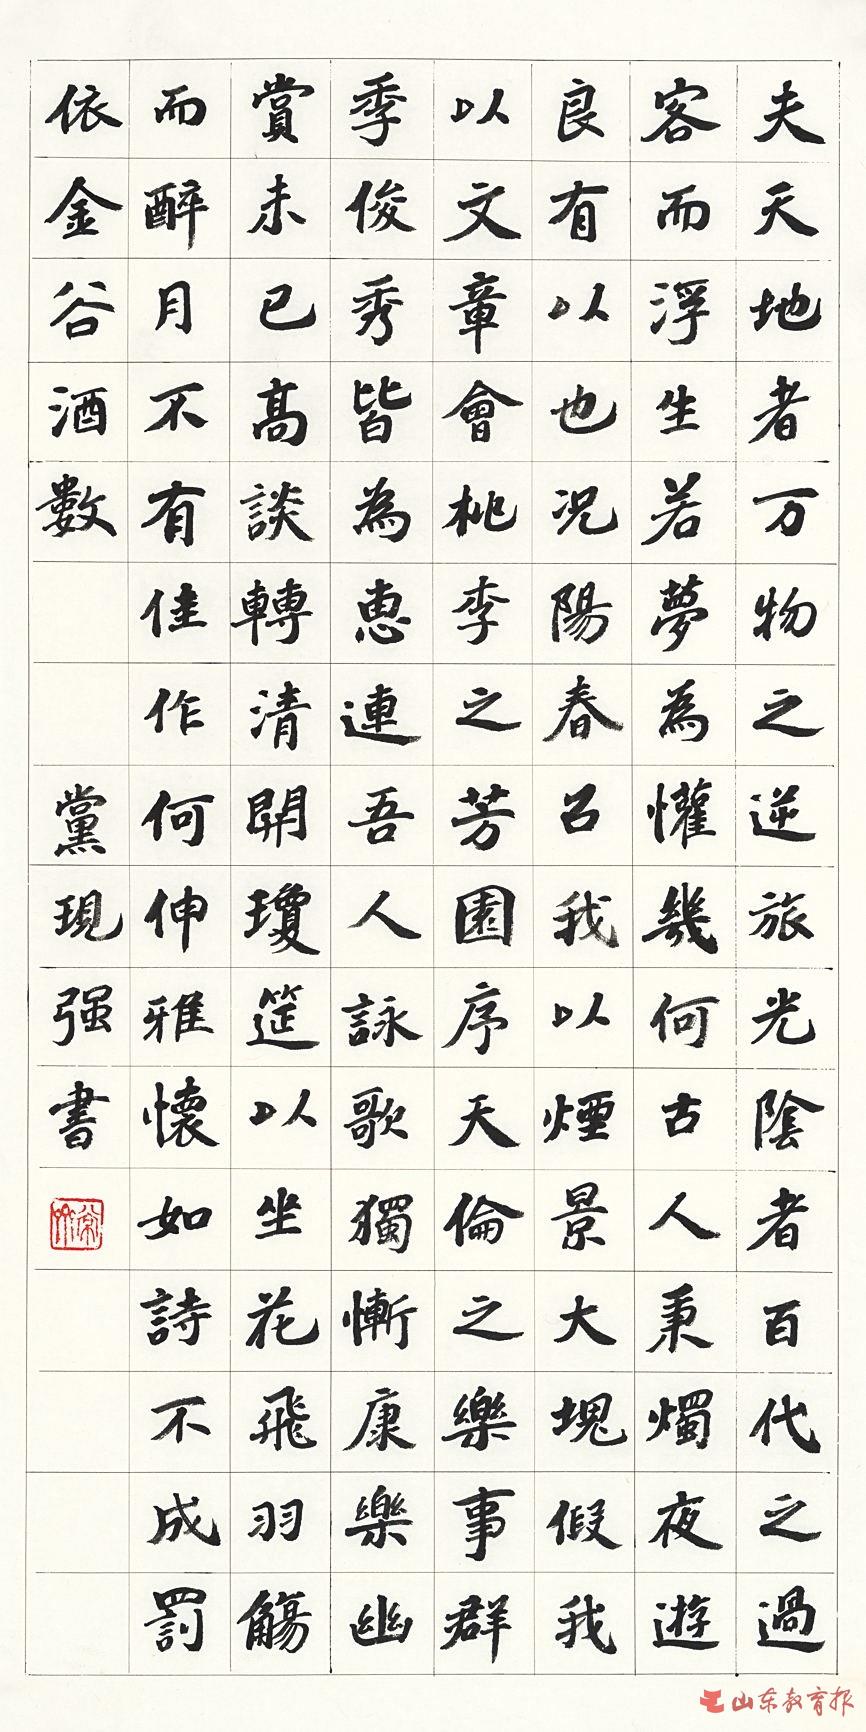 夫天地者万物之逆旅光陰者百代之過
客而浮生若夢為懽幾何古人秉燭夜遊
良有以也况陽春召我以煙景大塊假我
以文章會桃李之芳園序天倫之樂事群
季俊秀皆為恵連吾人詠歌獨慚康樂幽
賞未已髙談轉清開瓊筵以坐花飛羽觴
而醉月不有佳作何伸雅懷如詩不成罰
依金谷酒數
黨現强書
山东教育报